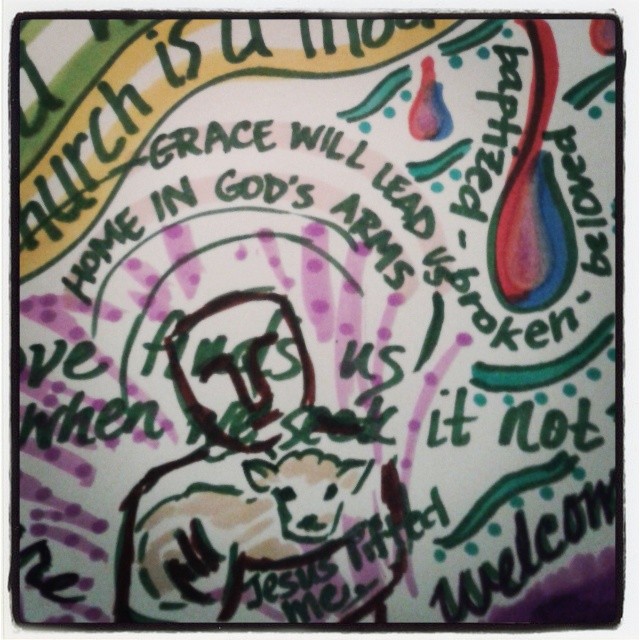 is a
GRACE WILL LEAD US
HOME IN GOD'S ARMS
baptized - broken - beloved
finds us
when we seek it not
Jesus lifted
me..
welcom